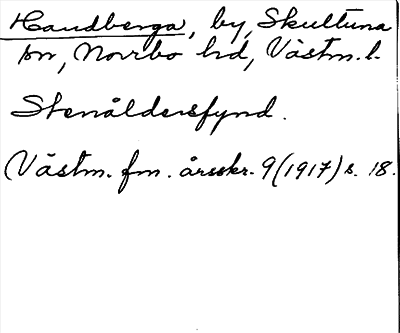 Handberga, by, Skultuna
sn, Norrbo hd, Västm. l.
Stenåldersfynd.
Västm. fm. årsskr. 9 (1917) s. 18.